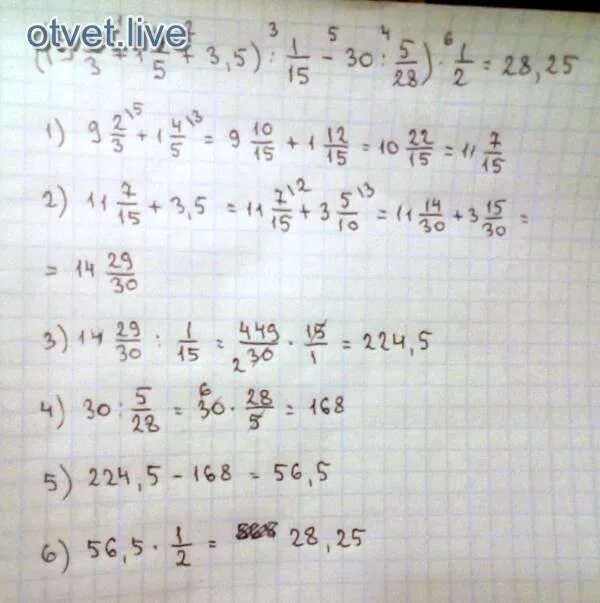 otvet.live
3 1 5 4 6
3 5 + 3,5) : 1/15 - 30 : 5/28) · 1/2 = 28,25
1) 9 2/3 \5 + 1 4/5 \3 = 9 10/15 + 1 12/15 = 10 22/15 = 11 7/15
2) 11 7/15 + 3,5 = 11 7/15 \2 + 3 5/10 \3 = 11 14/30 + 3 15/30 =
= 14 29/30
3) 14 29/30 : 1/15 = 449/30 2 · 15/1 = 224,5
4) 30 : 5/28 = 30 6 · 28/5 = 168
5) 224,5 - 168 = 56,5
6) 56,5 · 1/2 = 28,25